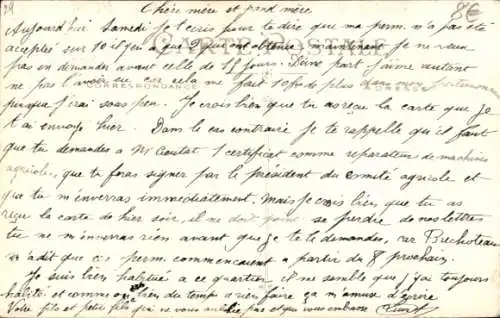 Chère mère et grand mère.
8€
Aujourd'hui Samedi je t'écris pour te dire que ma perm. n'a pas été
acceptée, sur 10 il y en a que 2 qui ont obtenue maintenant je ne veux
CARTE POSTALE
pas en demander avant celle de jours. D'une part j'aime autant
ne pas l'avoir eue car cela me fait 10 fr de plus dans mon portemonnaie
CORRESPONDANCE
ADRESSE
puisque j'irai sous peu. Je crois bien que tu as reçu la carte que je
t'ai envoyé hier. Dans le cas contraire je te rappelle qu'il faut
que tu demandes a Mr 1 certificat comme réparateur de machines
agricoles, que tu feras signer par le président du comité agricole et
que tu m'enverras immédiatement. Mais je crois bien que tu as
reçu la carte de hier soir, il ne doit point se perdre de nos lettres
tu ne m'enverras rien avant que je te le demandes, car
m'a dit que ces perm. commencaient a partir du 8 prochain.
Je suis bien habitué a ce quartier il me semble que j'y ai toujours
habité et comme on a bien du temps a rien faire ça m'amuse d'écrire
Votre fils et petit fils qui ne vous oublie pas et qui vous embrasse